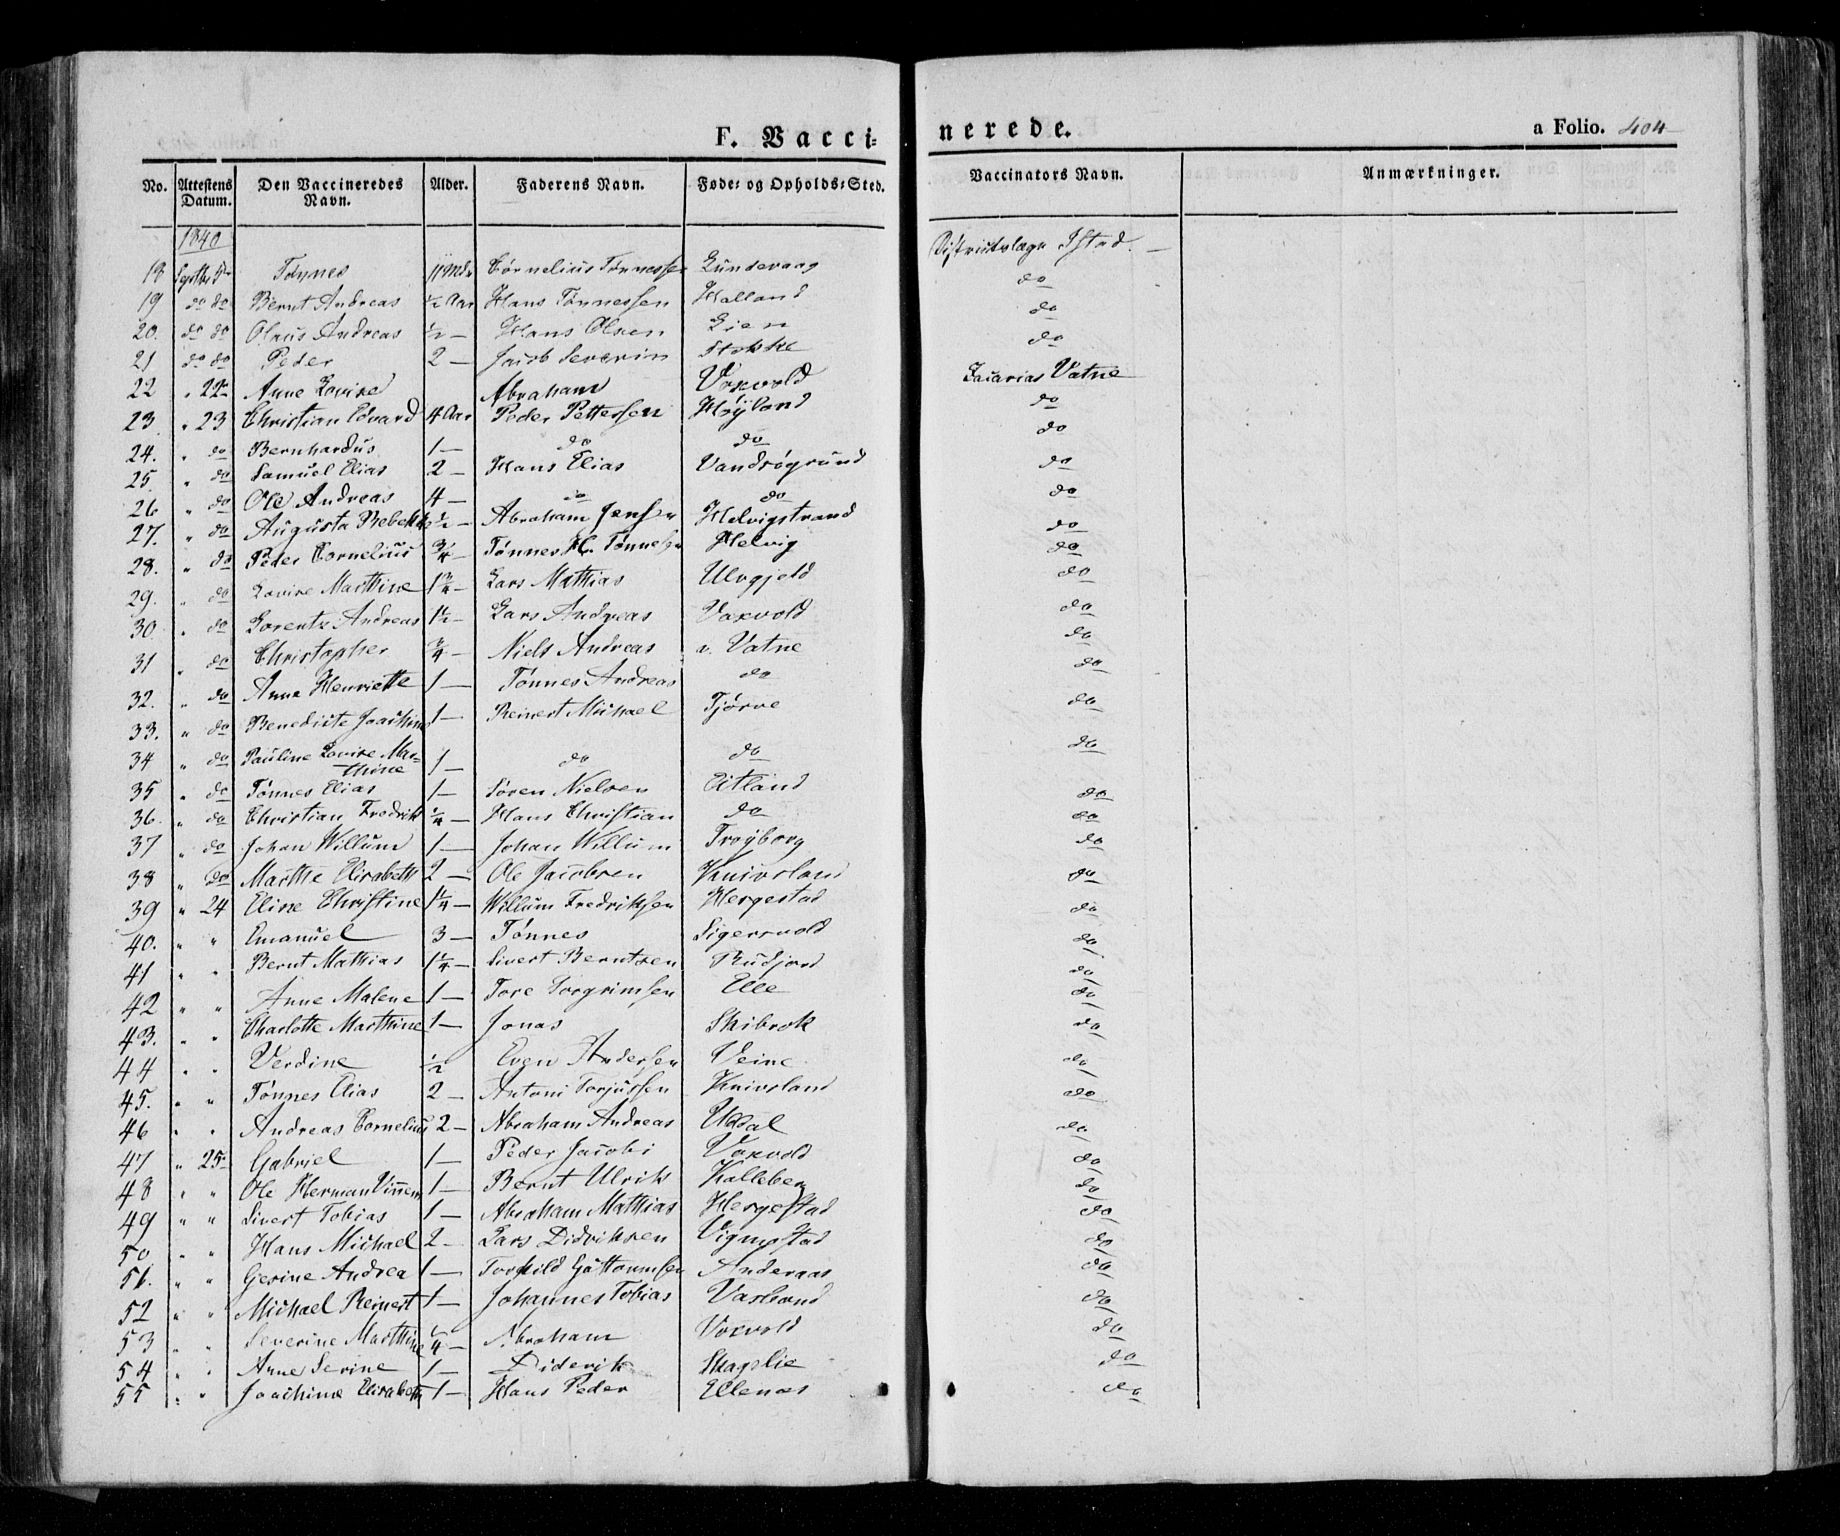 F. Vacci- nerede. a Folio. 404
No. Attestens Datum. Den Vaccineredes Navn. Alder. Faderens Navn. Føde- og Opholds-Sted. Vaccinators Navn. Anmærkninger.
1840
18 Septbr 5 Tønnes 11 Mdr Cornelius Tønnessen Lundevaag Districtslæge Istad.
19 do do Bernt Andreas ½ Aar Hans Tønnessen Halland do
20. do do Olaus Andreas ½ — Hans Olsen Lien do
21 do do Peder 2 — Jacob Severin Stokke do
22 " 22 Anne Lovise Abraham Voxvold Zacarias Vatne
23. " 23 Christian Edvard 4 Aar Peder Pettersen Høyland do
24. " do Bernhardus 1 — do do do
25 " do Samuel Elias 2 — Hans Elias Vandsøgrund do
26 " do Ole Andreas 4 — do do do
27. " do Augusta Rebekka ½ — Abraham Jensen Helvigstrand do
28. " do Peder Cornelius ¾ — Tønnes H. Tønnesen Helvig do
29. " do Lovise Marthine 1¾ — Lars Mathias Ulvgjeld do
30 " do Lorentz Andreas 1½ — Lars Andreas Voxvold do
31 " do Christopher ¾ — Niels Andreas v. Vatne do
32. " do Anne Henriette 1 — Tønnes Andreas do do
33. " do Benedicte Joachime 1 — Reinert Michael Tjørve do
34 " do Pauline Lovise Mar-
thine 1 — do do do
35 " do Tønnes Elias 1 — Søren Nielsen Eitland do
36. " do Christian Fredrik ¼ — Hans Christian do do
37 " do Johan Willum 1 — Johan Willum Trøyborg do
38 " do Marthe Elisabeth 2 — Ole Jacobsen Knivsland do
39 " 24 Eline Christine 1¼ — Willum Fredriksen Hergestad do
40. " " Emanuel 3 — Tønnes Sigersvold do
41 " " Bernt Mathias 1¼ — Sivert Berntsen Rudjord do
42 " " Anne Malene 1 — Tore Torgrimsen Elle do
43. " " Charlotte Marthine 1 — Jonas Skibrok do
44 " " Verdine ½ Even Andersen Veine do
45. " " Tønnes Elias 2 — Antoni Torjussen Knivsland do
46 " " Andreas Cornelius 2 — Abraham Andreas Uddal do
47 " 25 Gabriel 1 — Peder Jacobi Voxvold do
48 " " Ole Herman 1 — Bernt Ulrik Kalleberg do
49 " " Sivert Tobias 1 — Abraham Mathias Hergestad do
50 " " Hans Michael 2 — Lars Didriksen Vigmostad do
51. " " Gesine Andrea 1 — Torkild Guttormsen Anderaas do
52 " " Michael Reinert 1 — Johannes Tobias Vasland do
53 " " Severine Marthine ¼ — Abraham Voxvold do
54 " " Anne Serine 1 — Diderik Skagslie do
55 " " Joachime Elisabeth 1 — Hans Peder Ellenes do